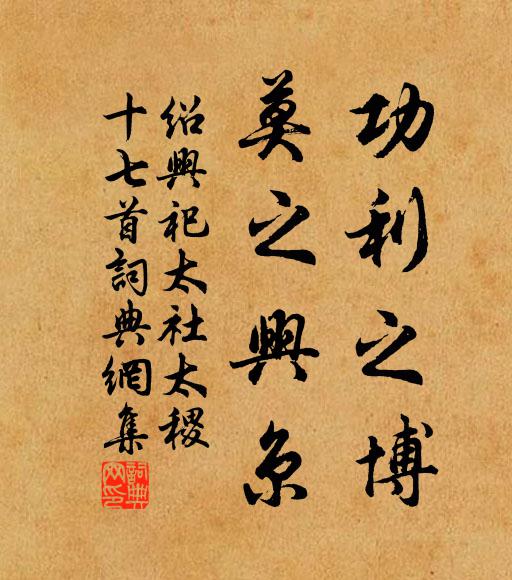 功利之博
莫之與京
紹興祀太社太稷
十七首詞典網集
詞典網印